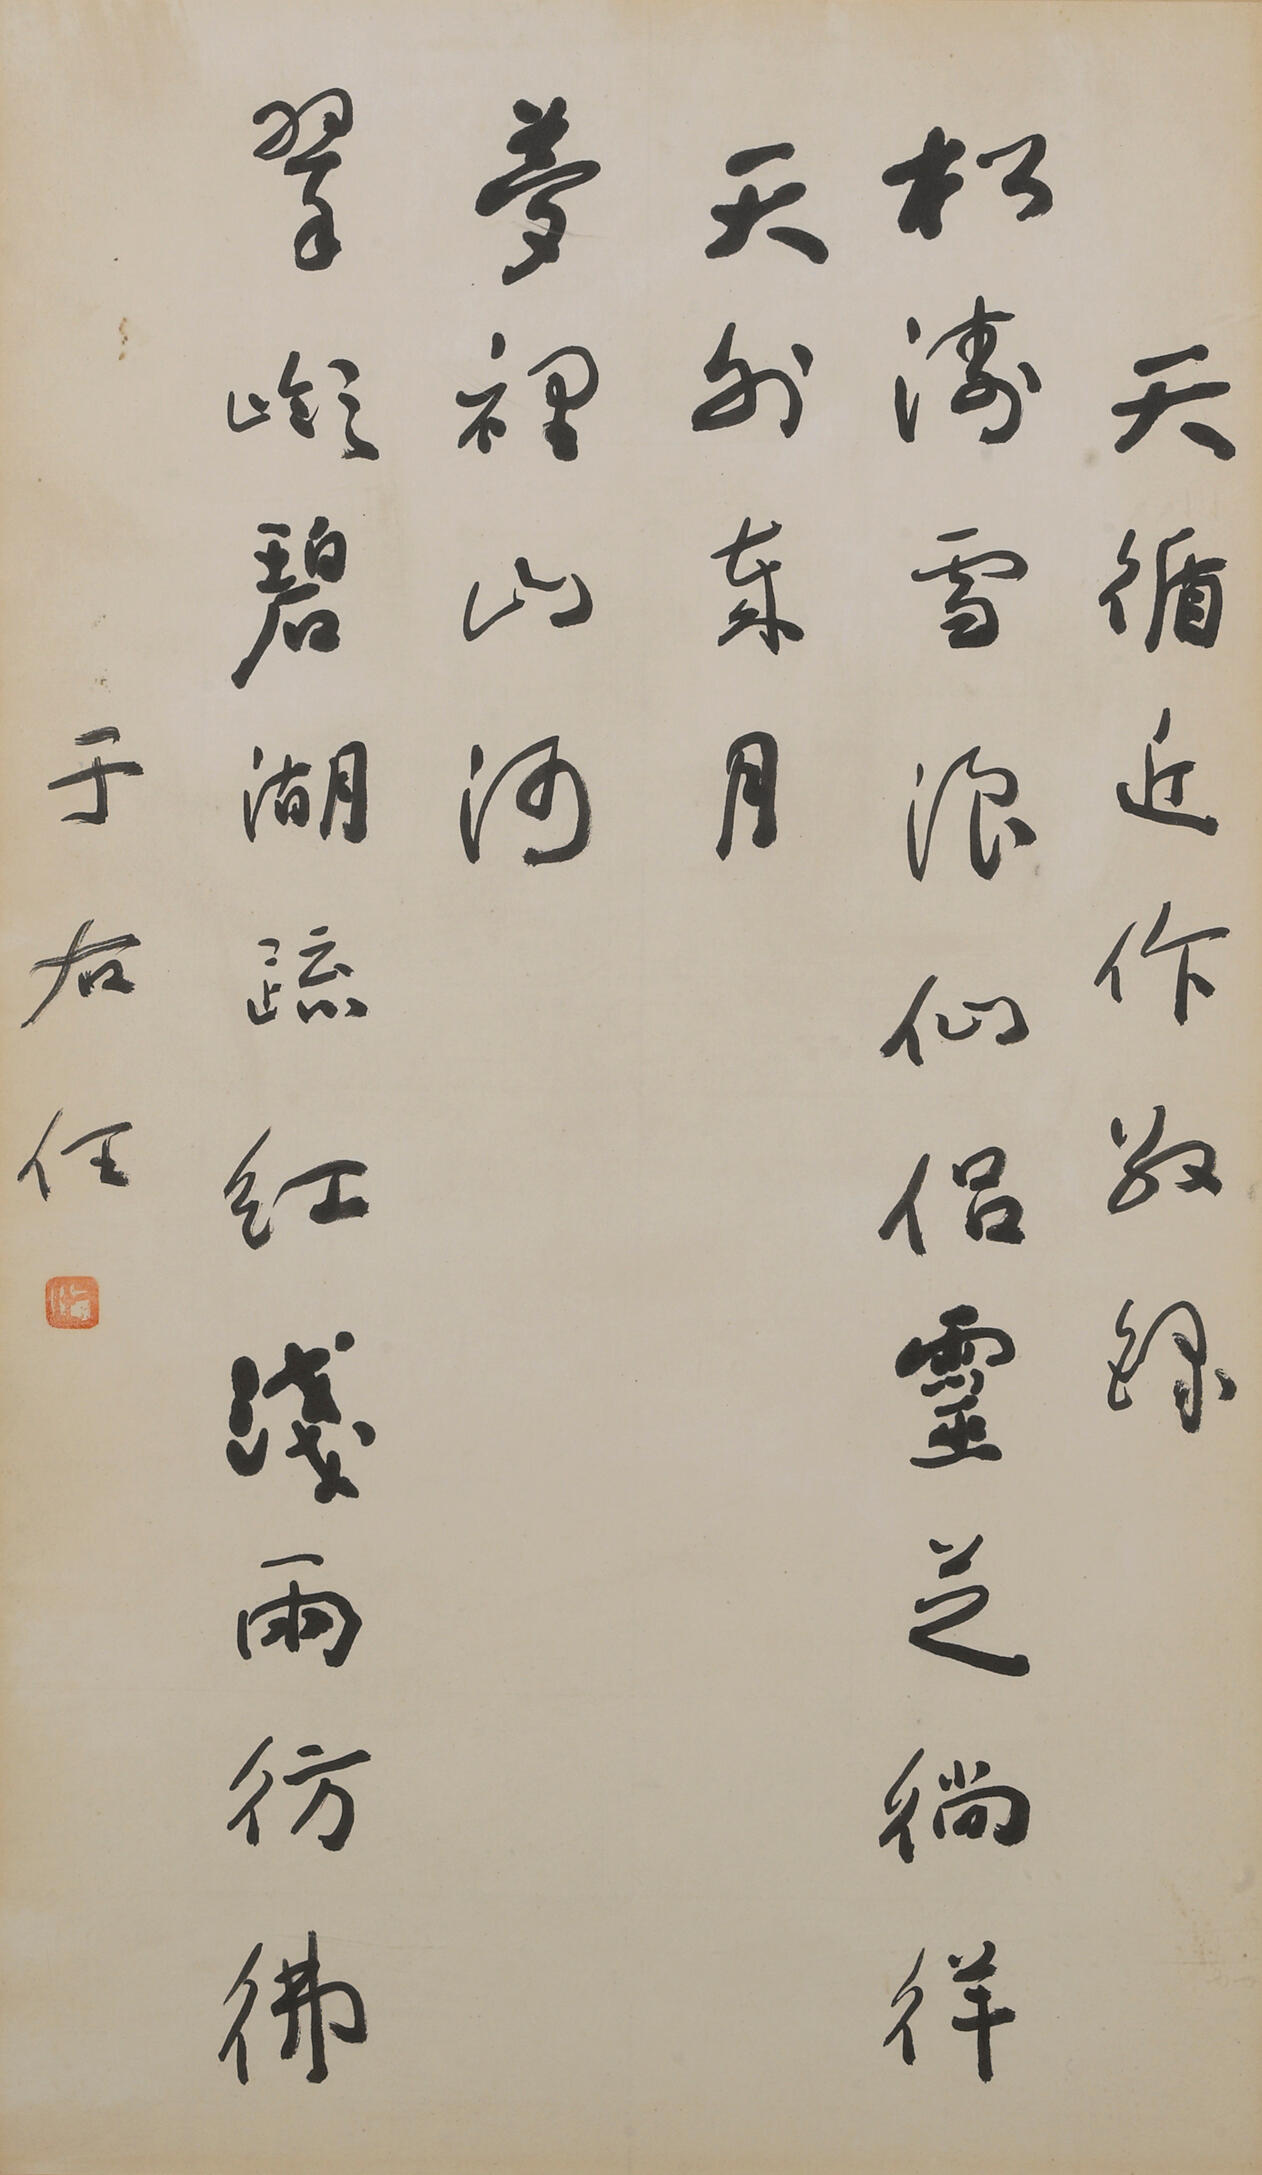 天循近作敬錄
松濤雪浪仙侶靈芝徜徉
天外月
翠嶺碧湖疏紅淺雨彷彿
夢裡山河
于右任